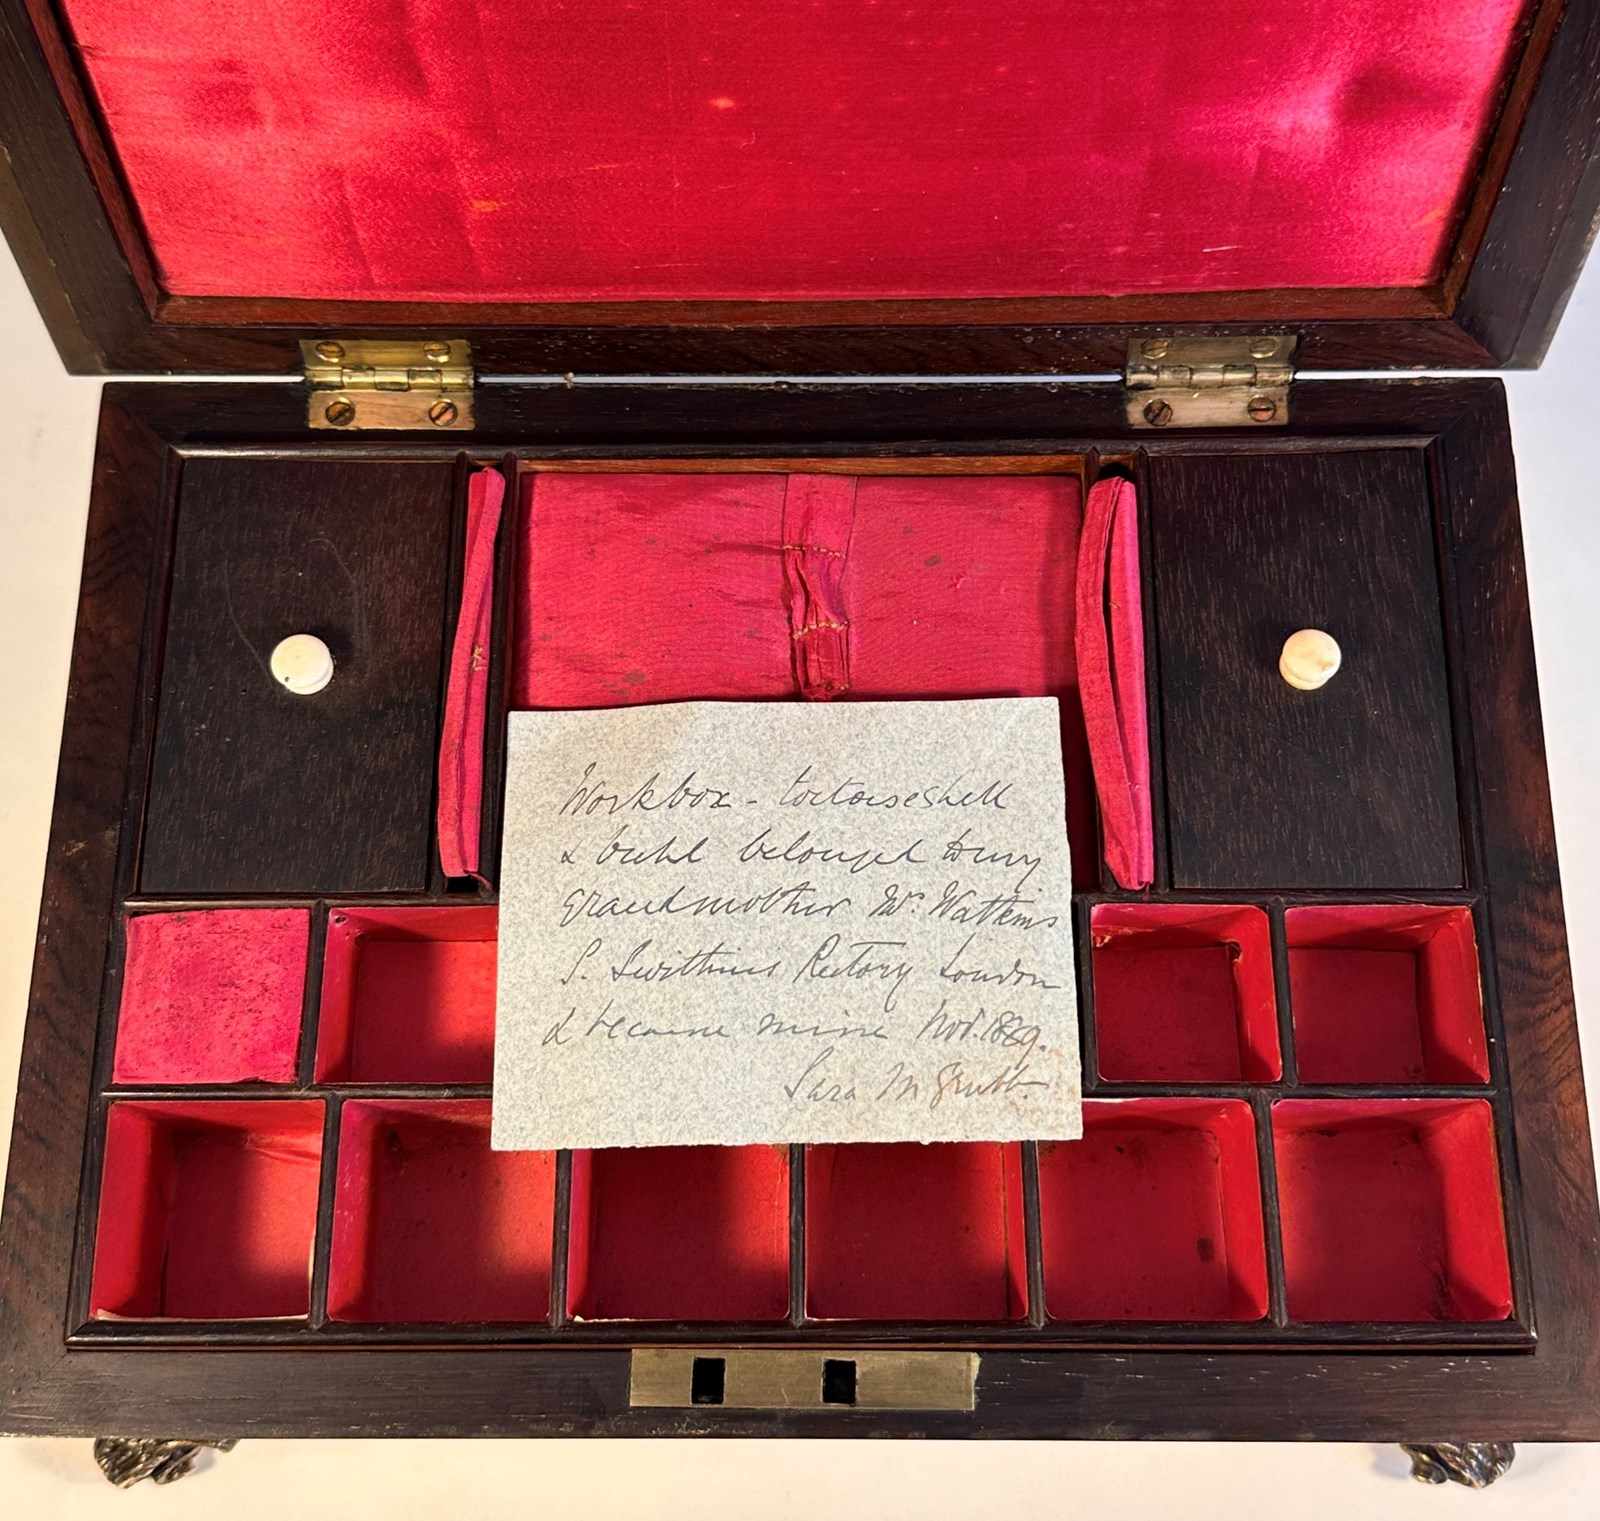 Workbox - tortoiseshell
& buhl belonged to my
grandmother Mrs. Watkins
S. Swithins Rectory London
& became mine Nov. 1889.
Sara M Grubb.